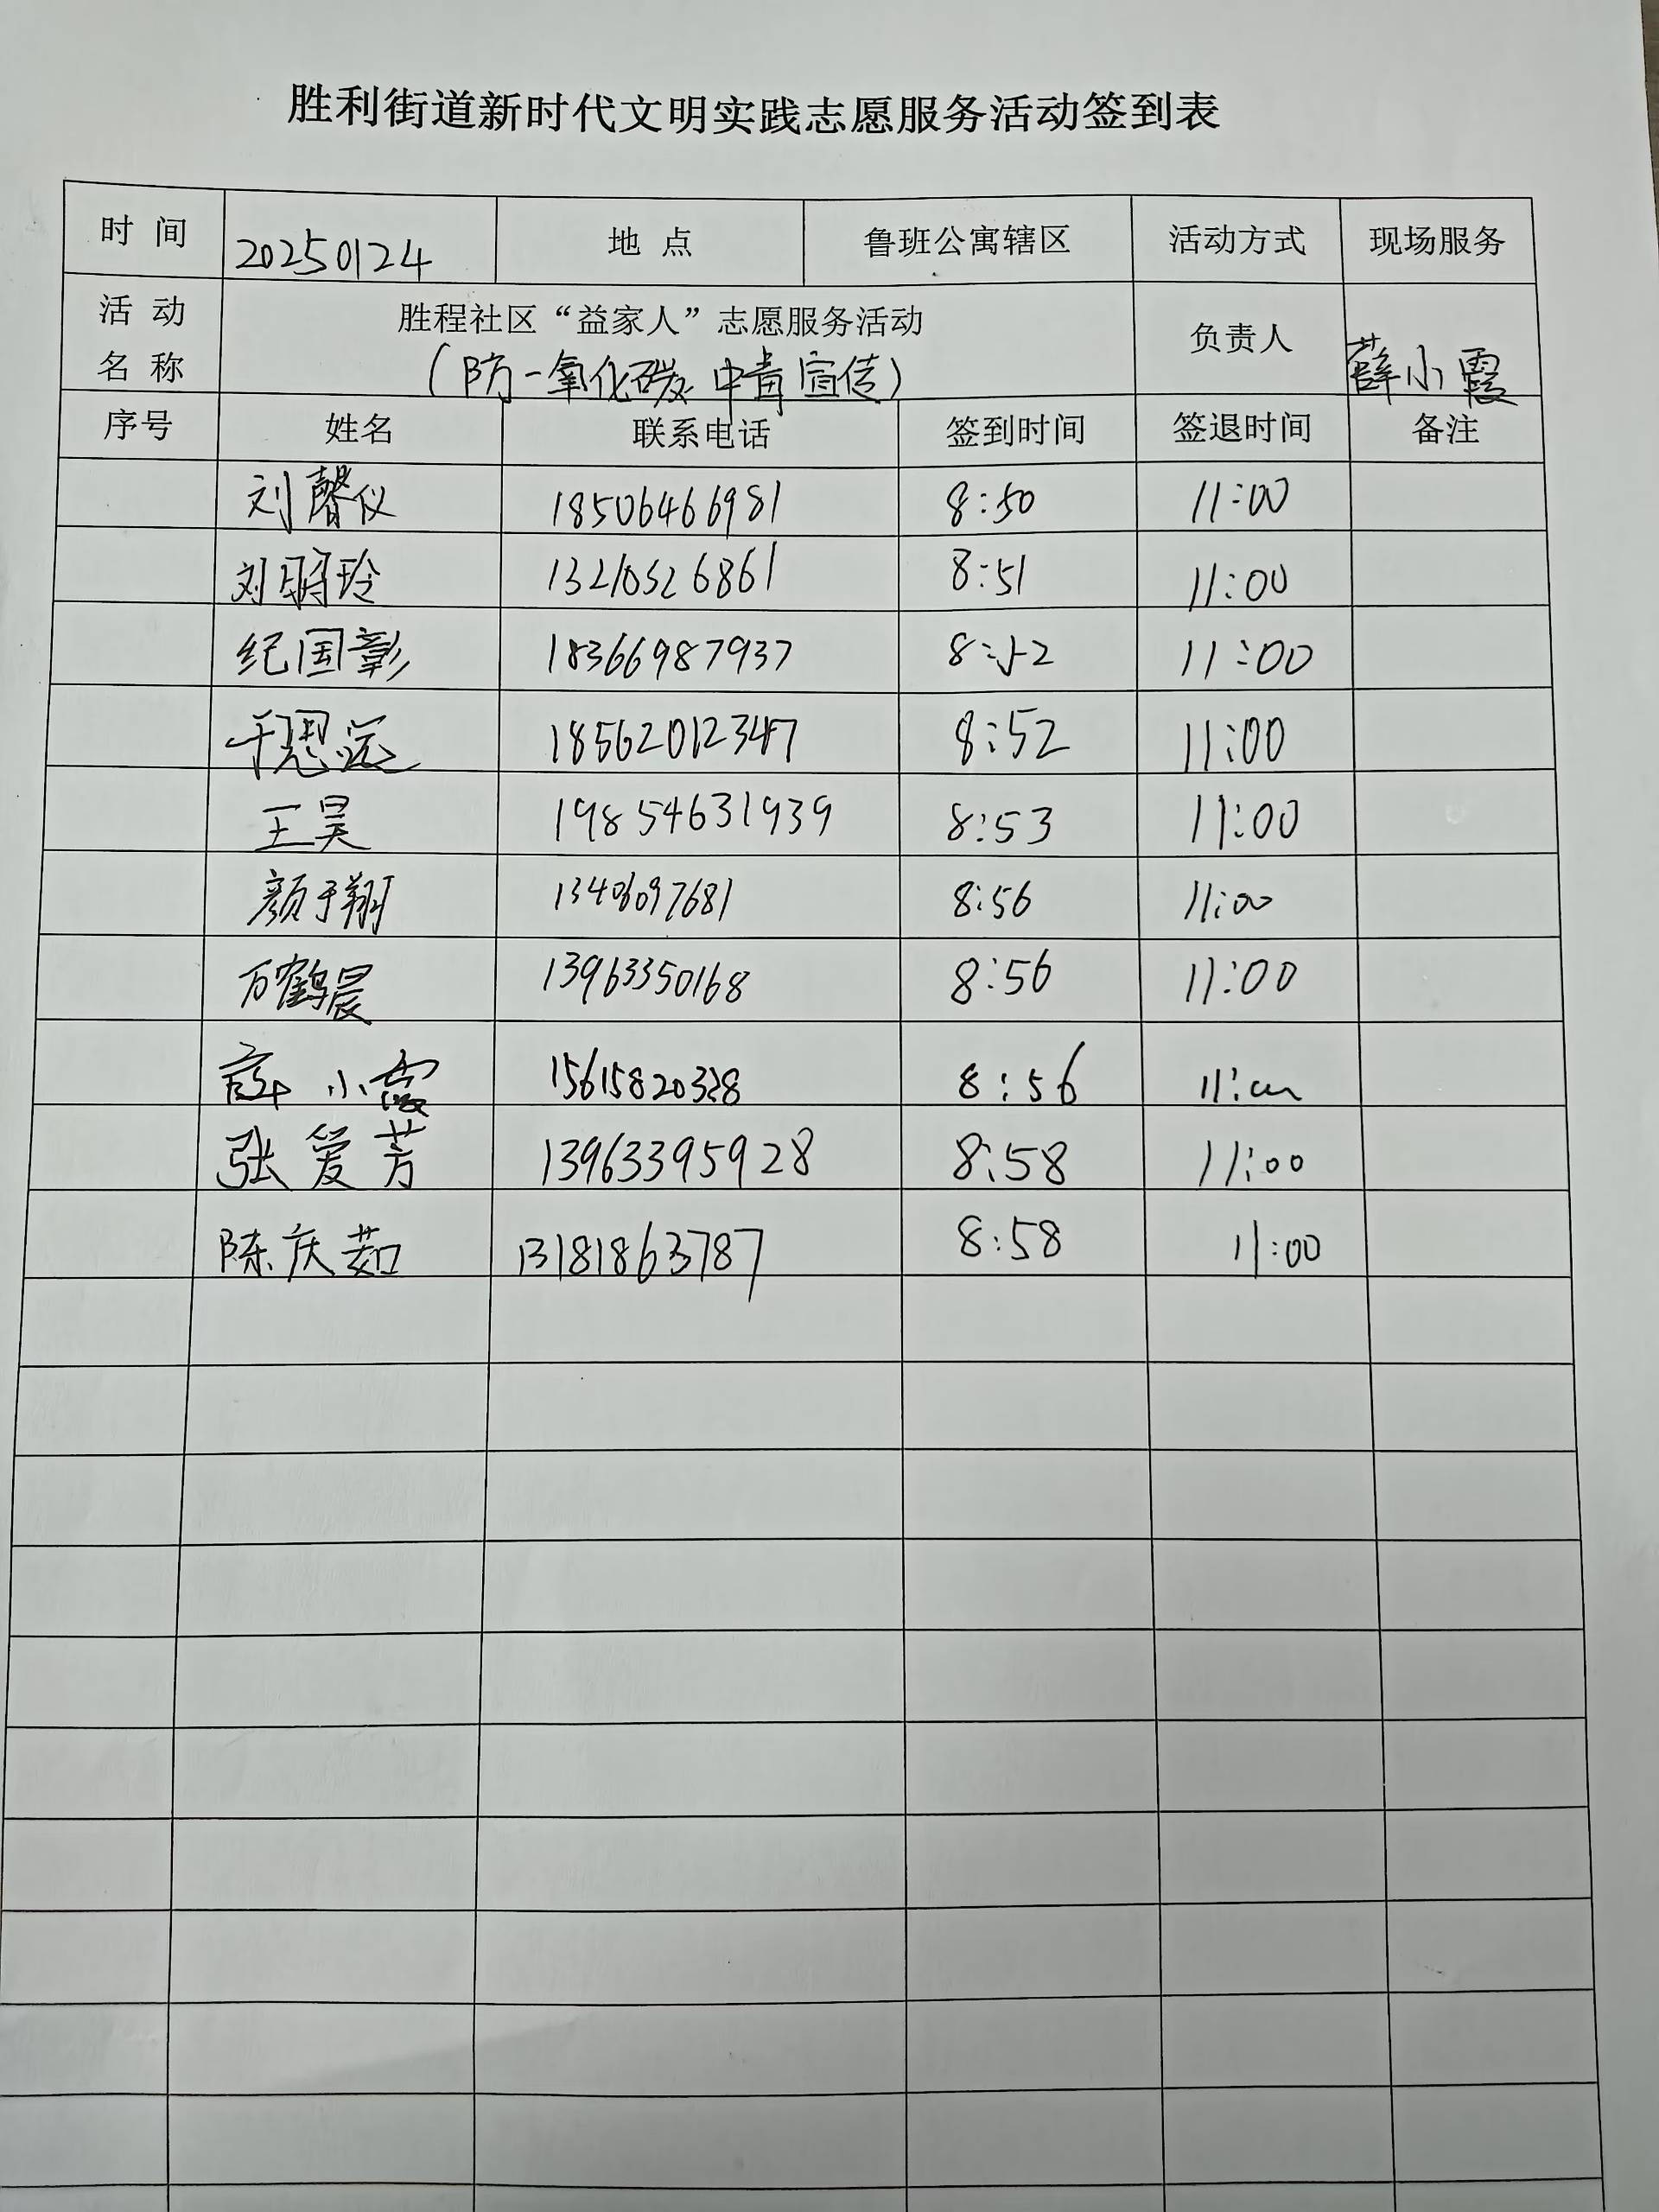 胜利街道新时代文明实践志愿服务活动签到表
时 间 20250124 地 点 鲁班公寓辖区 活动方式 现场服务
活 动 名 称 胜程社区“益家人”志愿服务活动 负责人 薛小霞
(防一氧化碳中毒宣传)
序号 姓名 联系电话 签到时间 签退时间 备注
刘馨仪 18506466981 8:50 11:00
刘玲 13210526861 8:51 11:00
纪国彰 18366987937 8:52 11:00
于思远 18562012347 8:52 11:00
王昊 19854631939 8:53 11:00
颜于翔 8:56 11:00
万鹤晨 13963350168 8:56 11:00
薛小霞 15615820328 8:56 11:00
张爱芳 13963395928 8:58 11:00
陈庆茹 13181863787 8:58 11:00